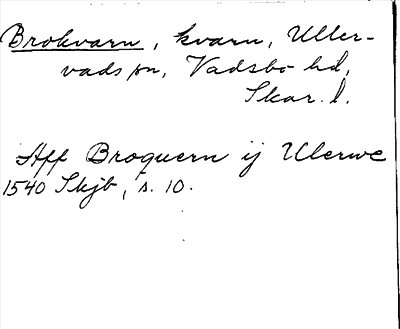 Brokvarn, kvarn, Uller-
vads sn, Vadsbo hd,
Skar. l.
Aff Broquern ij Ulerwe
1540 Skjb, s. 10.